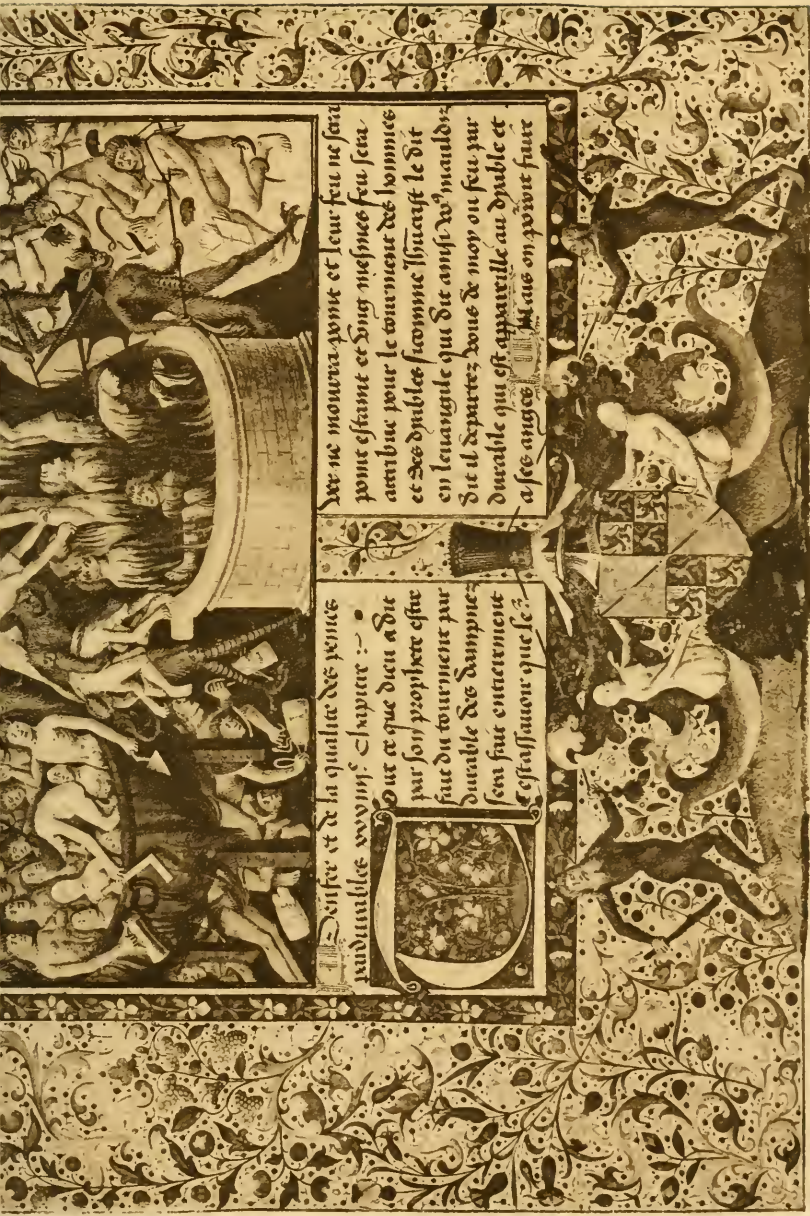 Denfer et de la qualite des peines
pardurables Chapitre
Tout ce que dieu a dit
par son prophete estre
fait du tourment par
durable des dampnez
sera fait entierement
Cestassauoir que le
ver ne mourra point et leur feu ne sera
point estaint et vng mesmes feu sera
atribue pour le tourment des hommes
et des dyables sicomme Jhucrist le dit
en leuangile qui dit ainsi voꝰ mauldiz
dit il departez vous de moy ou feu par
durable qui est appareille au dyable et
a ses anges Mais on faire